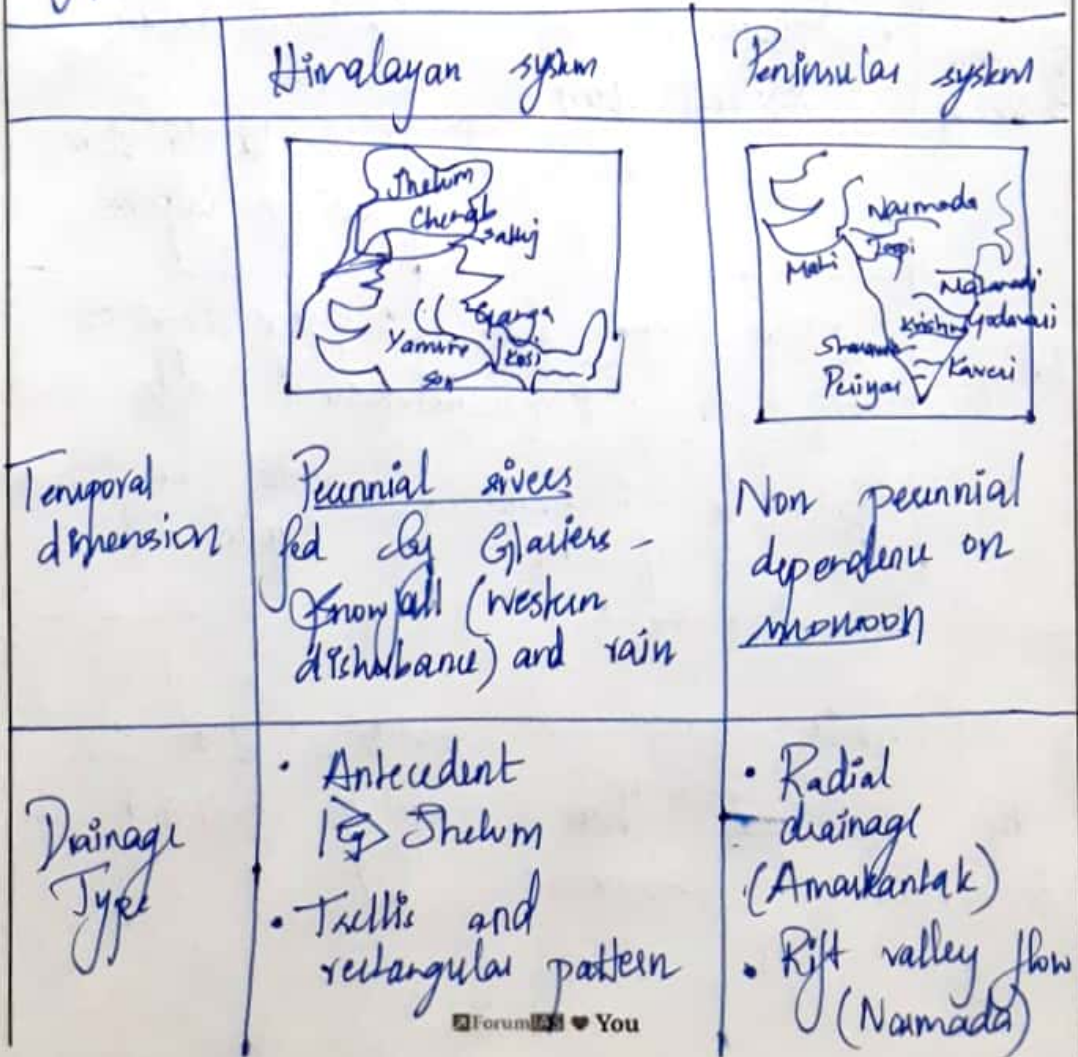 Himalayan system
Peninsular system
Jhelum
Chenab
Satluj
Ganga
Yamuna
Kosi
Son
Narmada
Tapi
Mahi
Mahanadi
Godavari
Krishna
Kaveri
Periyar
Temporal
dimension
Perennial rivers
fed by Glaciers -
Snowfall (western
disturbance) and rain
Non perennial
dependence on
monsoon
Drainage
Type
• Antecedent
Eg Jhelum
• Trellis and
rectangular pattern
• Radial
drainage
(Amarkantak)
• Rift valley flow
(Narmada)
ForumIAS ♥ You